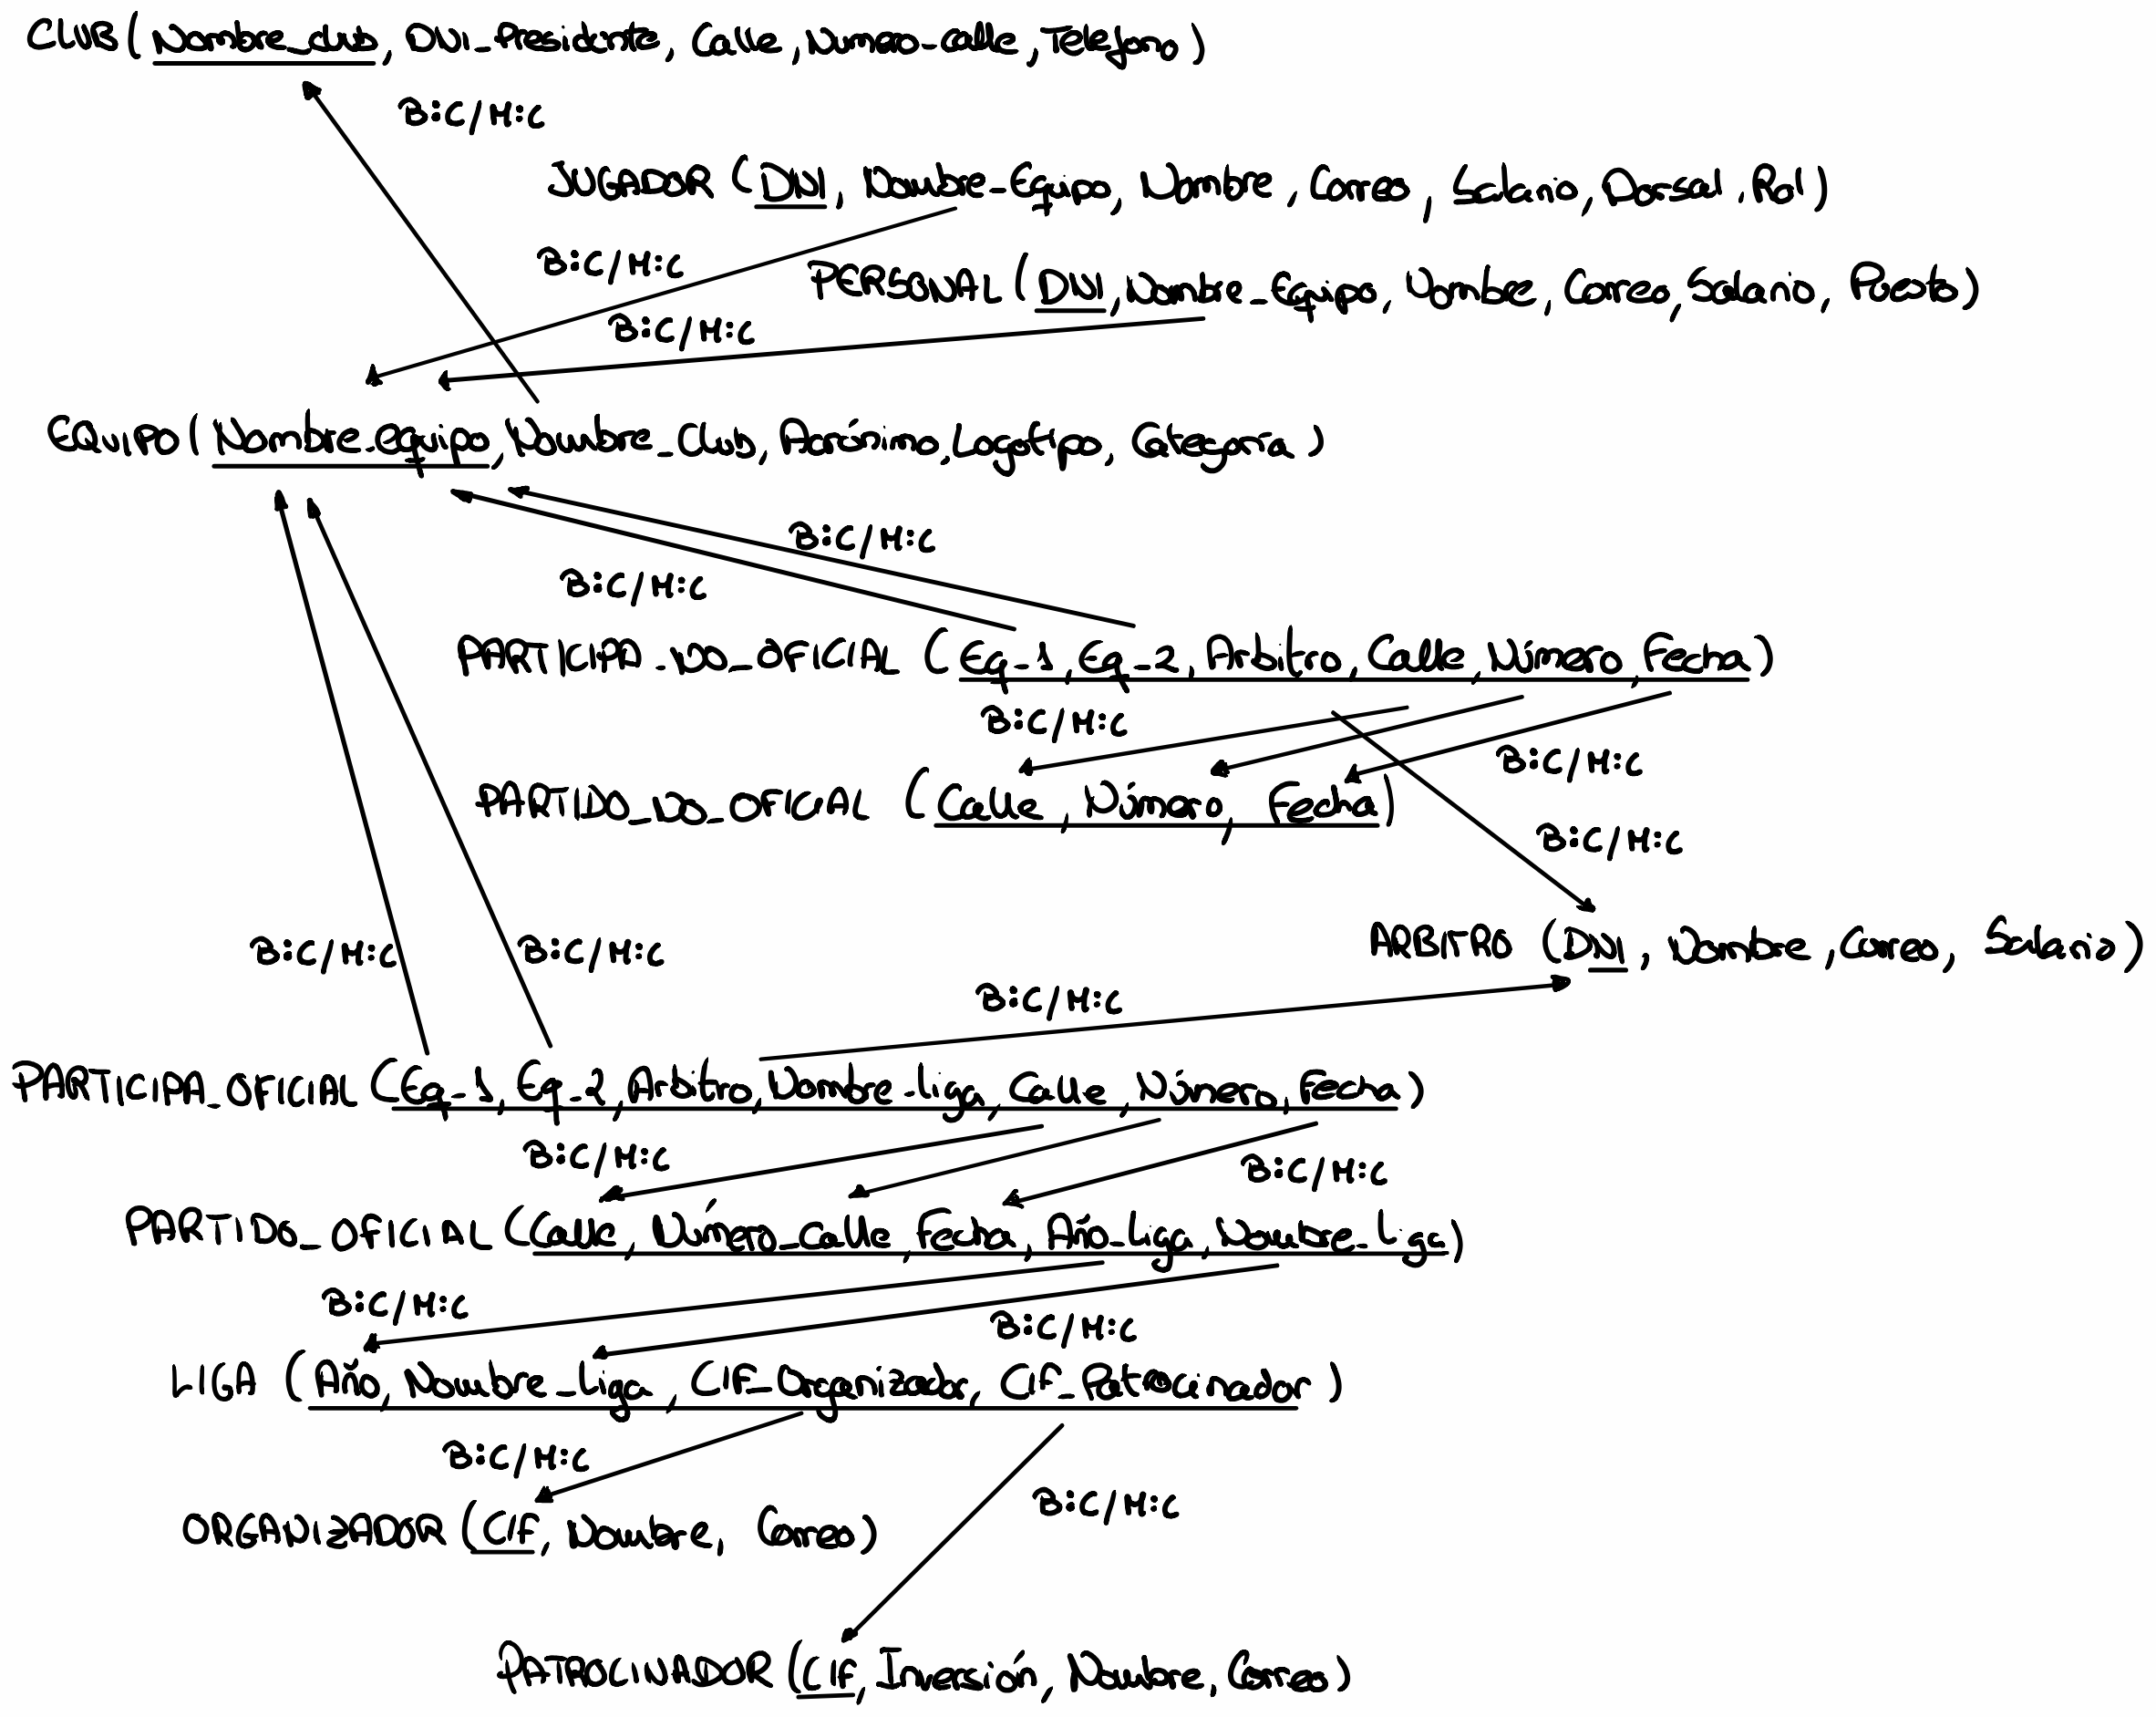 CLUB (Nombre_club, DNI_Presidente, Calle, Numero_calle, Telefono)
B:C/M:C
JUGADOR (DNI, Nombre_Equipo, Nombre, Correo, Salario, Dorsal, Rol)
B:C/M:C
PERSONAL (DNI, Nombre_Equipo, Nombre, Correo, Salario, Puesto)
B:C/M:C
EQUIPO (Nombre_equipo, Nombre_Club, Acrónimo, Logotipo, Categoría)
B:C/M:C
B:C/M:C
PARTICIPA_NO_OFICIAL (Eq_1, Eq_2, Arbitro, Calle, Número, Fecha)
B:C/M:C
B:C/M:C
PARTIDO_NO_OFICIAL (Calle, Número, Fecha)
B:C/M:C
B:C/M:C B:C/M:C
ARBITRO (DNI, Nombre, Correo, Salario)
B:C/M:C
PARTICIPA_OFICIAL (Eq_1, Eq_2, Arbitro, Nombre_liga, Calle, Número, Fecha)
B:C/M:C B:C/M:C
PARTIDO_OFICIAL (Calle, Número_calle, Fecha, Año_Liga, Nombre_Liga)
B:C/M:C B:C/M:C
LIGA (Año, Nombre_Liga, CIF_Organizador, CIF_Patrocinador)
B:C/M:C
B:C/M:C
ORGANIZADOR (CIF, Nombre, Correo)
PATROCINADOR (CIF, Inversión, Nombre, Correo)